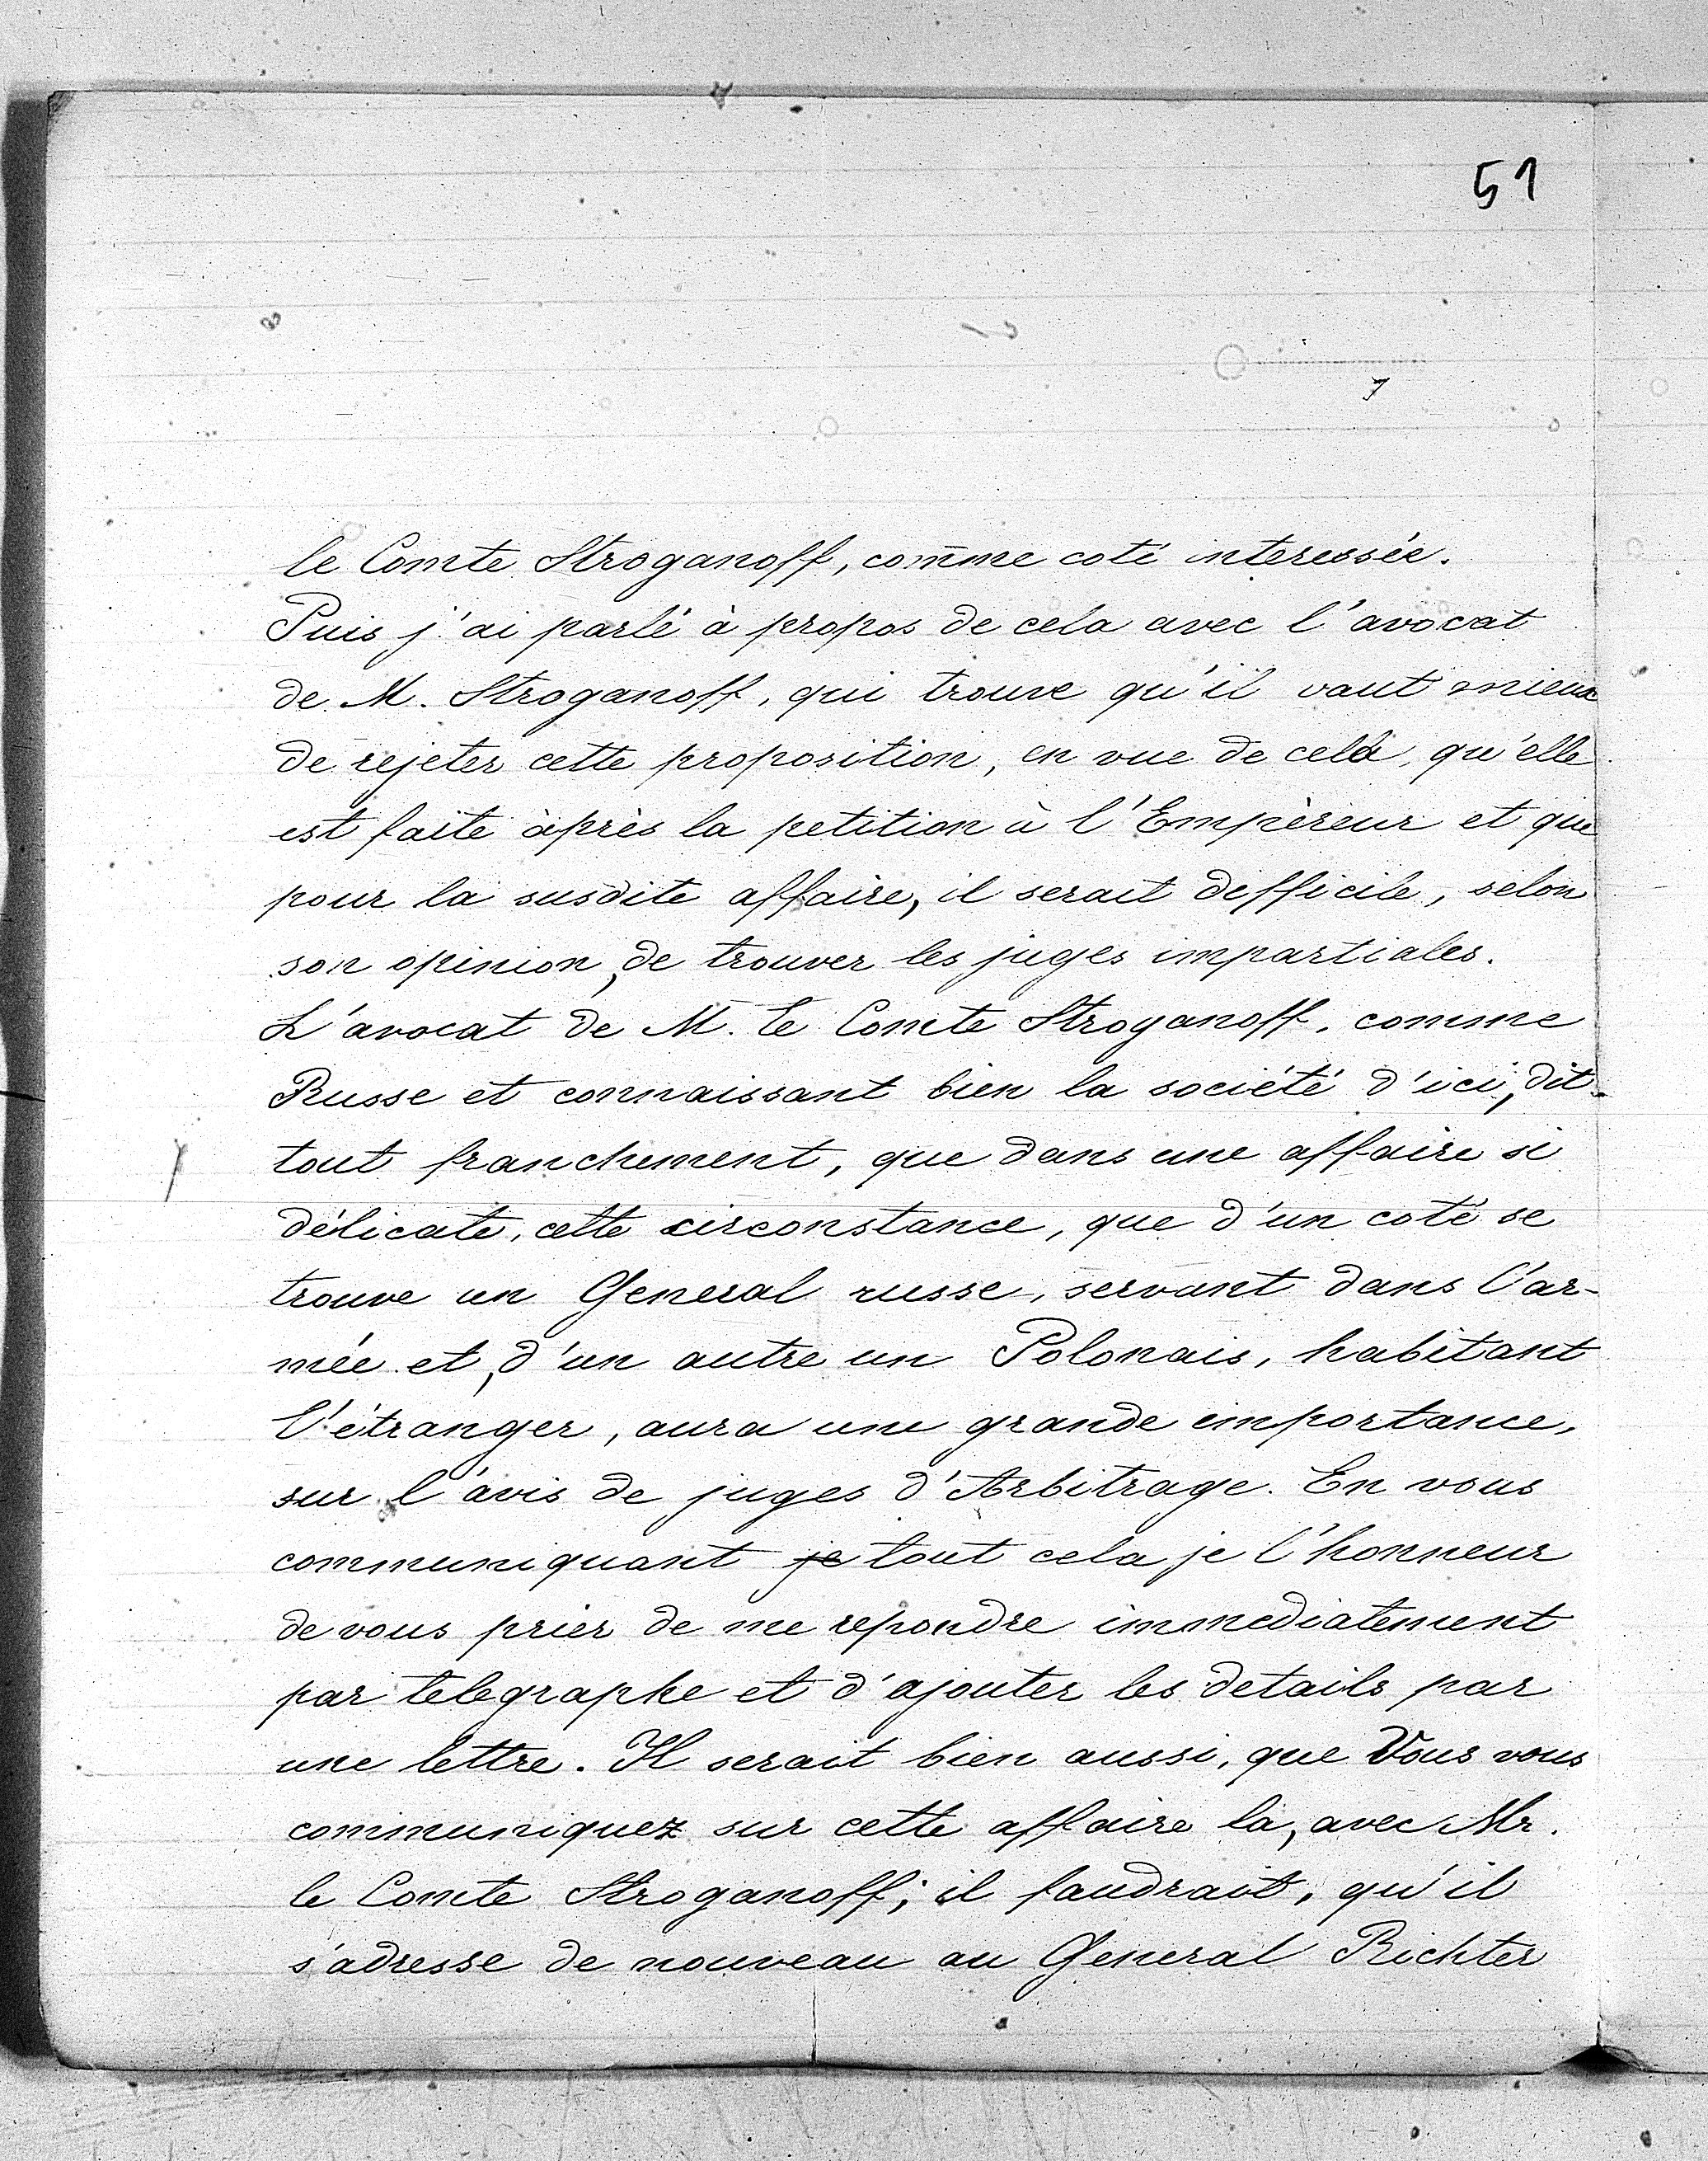 51
le Comte Stroganoff, comme coté interessée.
Puis j'ai parlé à propos de cela avec l'avocat
de M. Stroganoff, qui trouve qu'il vaut mieux
de rejeter cette proposition, en vue de celà, qu'elle
est faite àprès la petition à l'Empèreur et que
pour la susdite affaire, il serait defficile, selon
son opinion, de trouver les juges impartiales.
L'avocat de M. le Comte Stroganoff, comme
Russe et connaissant bien la société d'ici, dit
tout franchement, que dans une affaire si
délicate, cette circonstance, que d'un coté se
trouve un General russe, servant dans l'ar-
mée et, d'un autre un Polonais, habitant
l'étranger, aura une grande importance,
sur l'avis de juges d'Arbitrage. En vous
communiquant je tout cela je l'honneur
de vous prier de me repondre immediatement
par telegraphe et d'ajouter les details par
une lettre. Il serait bien aussi, que Vous vous
communiquez sur cette affaire la, avec Mr.
le Comte Stroganoff; il faudrait, qu'il
s'adresse de nouveau au General Richter